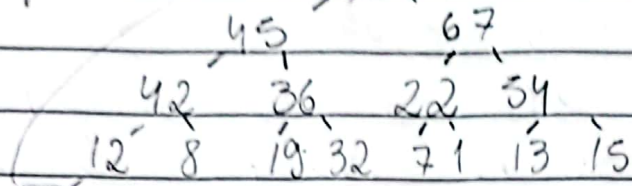 45 67
42 36 22 54
12 8 19 32 7 1 13 15